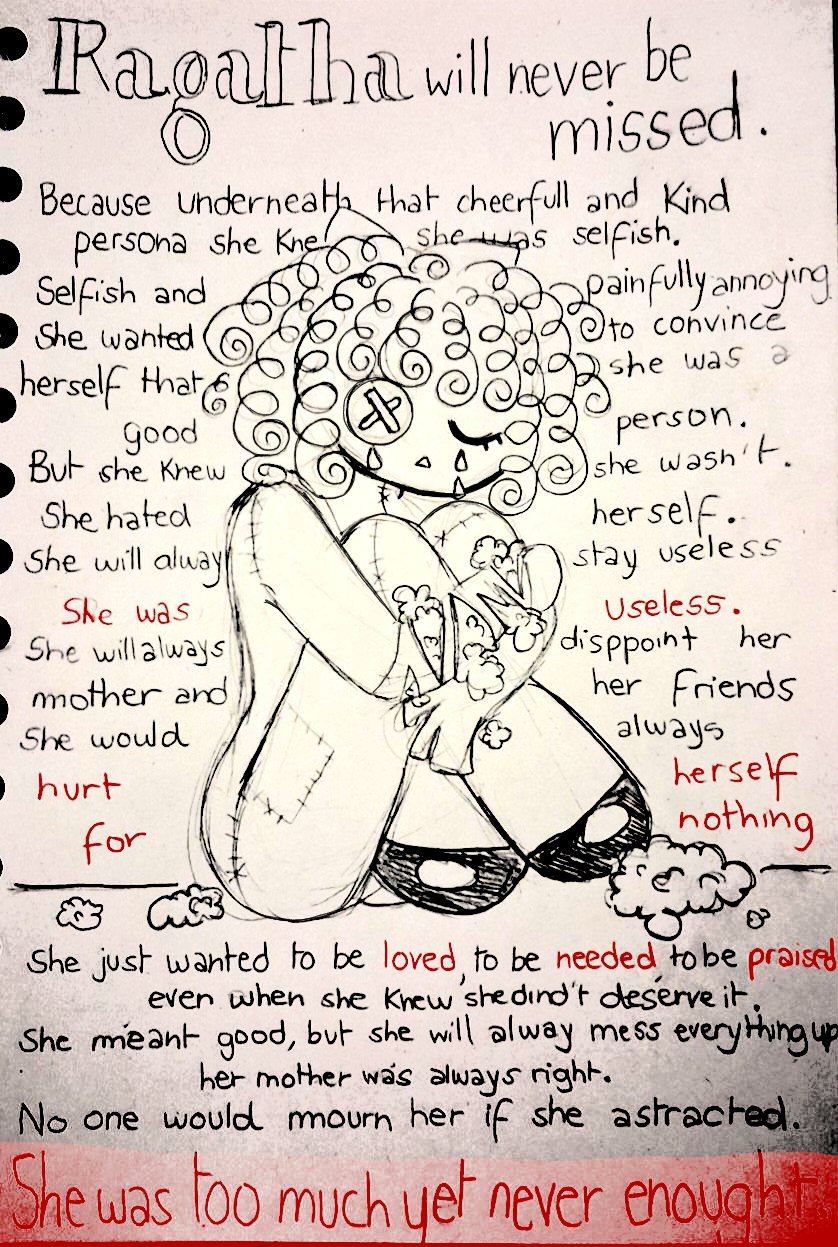 Ragatha will never be
missed.
Because underneath that cheerfull and kind
persona she kne she was selfish.
Selfish and painfully annoying
She wanted to convince
herself that she was a
good person.
But she knew she wasn't.
She hated herself.
She will alway stay useless
She was useless.
She will always disppoint her
mother and her friends
She would always
hurt herself
for nothing
She just wanted to be loved, to be needed, to be praised
even when she knew she dind't deserve it.
She meant good, but she will alway mess everything up
her mother was always right.
No one would mourn her if she astracted.
She was too much yet never enought.